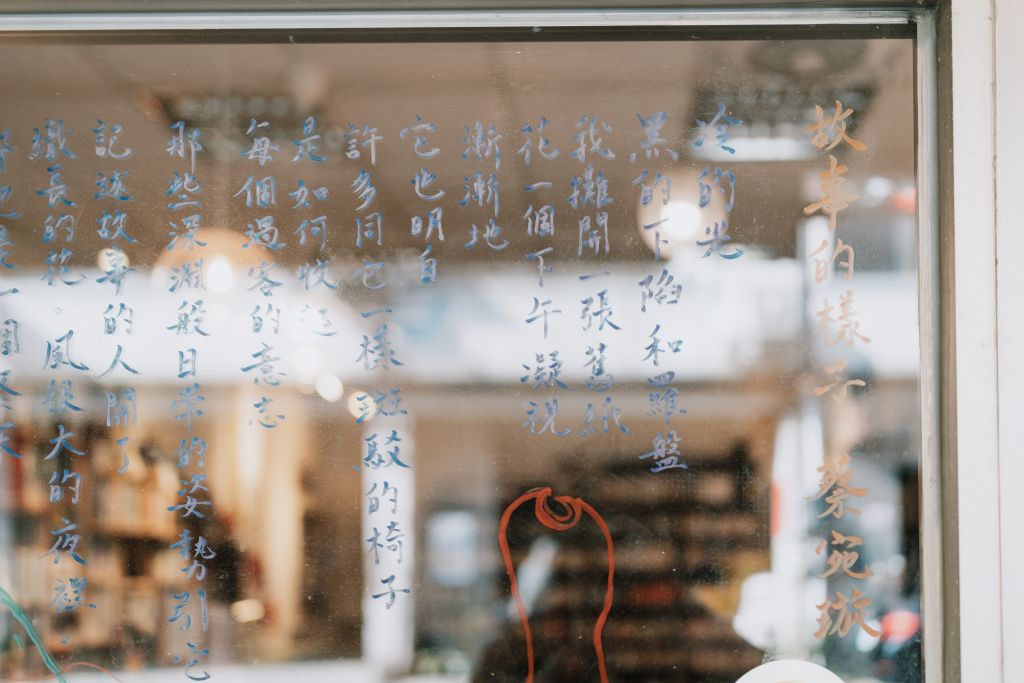 故事的樣子 蔡宛璇
冷的光
黑的下陷和羅盤
我攤開一張舊紙
花一個下午凝視
漸漸地
它也明白
許多同它一樣斑駁的椅子
是如何收
每個過客的意志
那些深淵般日常的姿勢引它
記述故事的人開了
織長的花。風很大的夜裡。
也是一個冬天